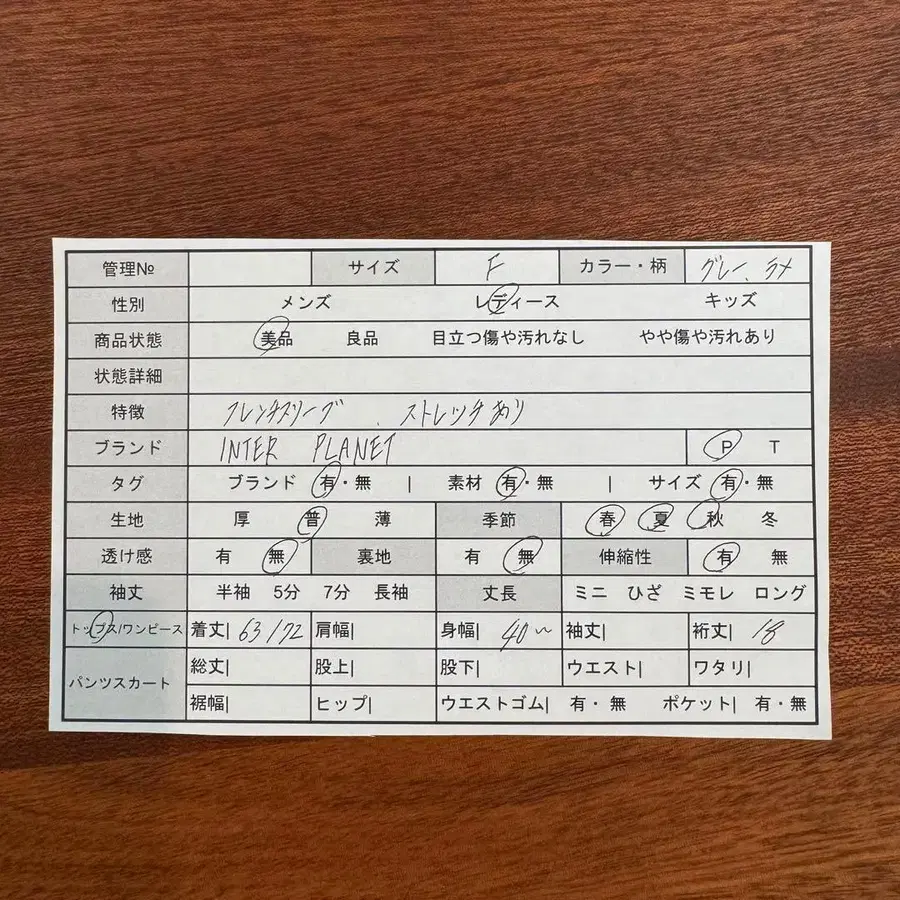 管理№ サイズ F カラー・柄 グレー、ラメ
性別 メンズ レディース キッズ
商品状態 美品 良品 目立つ傷や汚れなし やや傷や汚れあり
状態詳細
特徴 フレンチスリーブ 、ストレッチあり
ブランド INTER PLANET P T
タグ ブランド 有・無 | 素材 有・無 | サイズ 有・無
生地 厚 普 薄 季節 春 夏 秋 冬
透け感 有 無 裏地 有 無 伸縮性 有 無
袖丈 半袖 5分 7分 長袖 丈長 ミニ ひざ ミモレ ロング
トップス/ワンピース 着丈| 63/72 肩幅| 身幅| 40〜 袖丈| 裄丈| 18
パンツスカート 総丈| 股上| 股下| ウエスト| ワタリ|
裾幅| ヒップ| ウエストゴム| 有・無 ポケット| 有・無